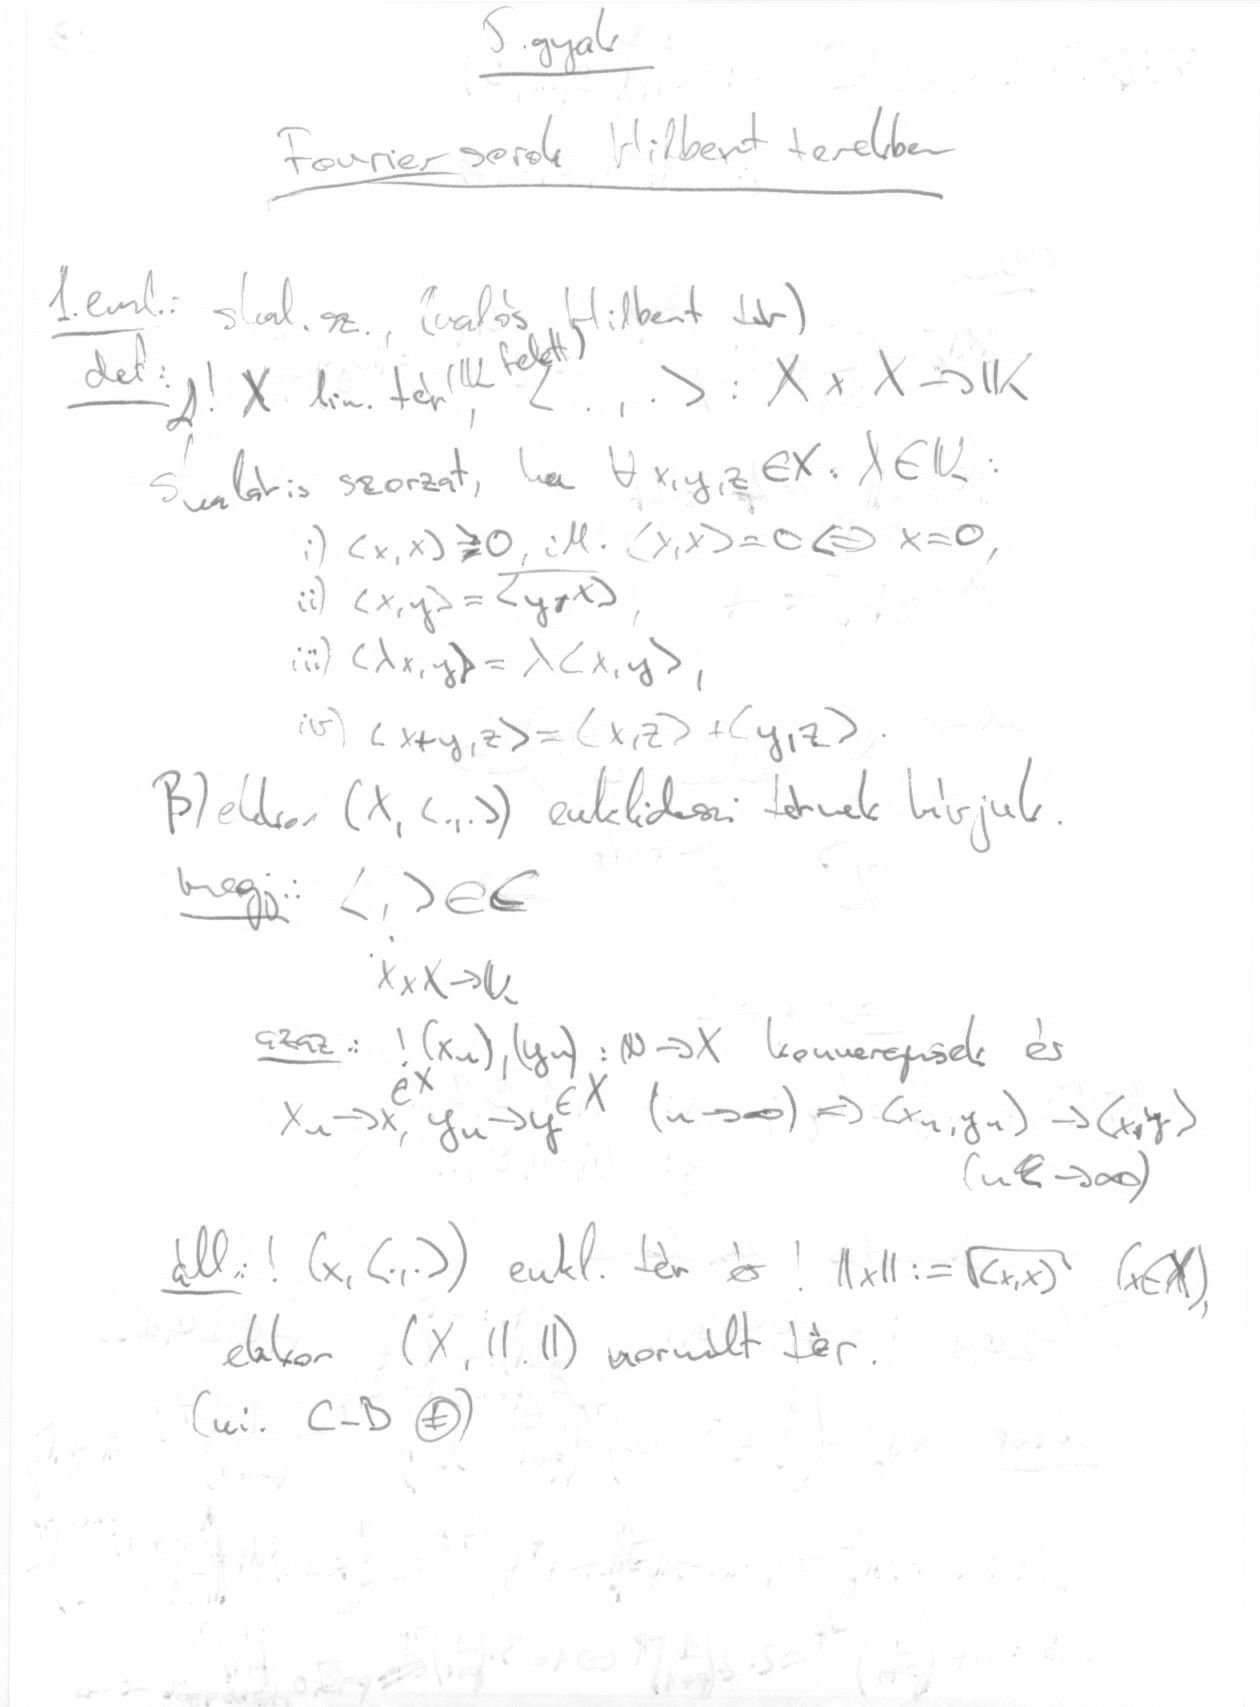 5. gyak
Fourier sorok Hilbert terekben
1. eml.: skal. sz., (valós Hilbert tér)
def: A! X lin. tér (𝕂 felett), <.,.> : X x X → 𝕂
Skaláris szorzat, ha ∀ x,y,z ∈ X, λ ∈ 𝕂 :
i) <x,x> ≥ 0, ill. <x,x> = 0 ⇔ x=0,
ii) <x,y> = \overline{<y,x>},
iii) <λx,y> = λ<x,y>,
iv) <x+y,z> = <x,z> + <y,z>.
B) ekkor (X, <.,.>) euklideszi térnek hívjuk.
megj.: < , > ∈ C
X x X → 𝕂
azaz: ! (xₙ), (yₙ) : ℕ → X konvergensek és
xₙ → x ∈ X, yₙ → y ∈ X (n → ∞) ⇒ <xₙ,yₙ> → <x,y>
(n → ∞)
áll.: ! (X, <.,.>) eukl. tér és ! ||x|| := √<x,x> (x ∈ X),
ekkor (X, ||.||) normált tér.
(ui. C-B)